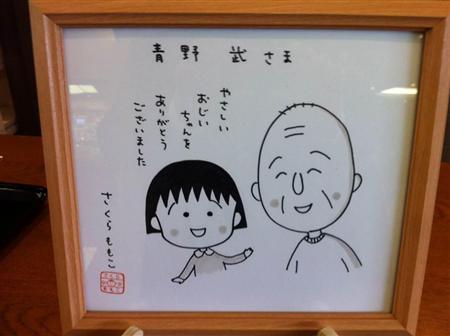 青野 武さま
やさしい
おじい
ちゃんを
ありがとう
ございました
さくらももこ